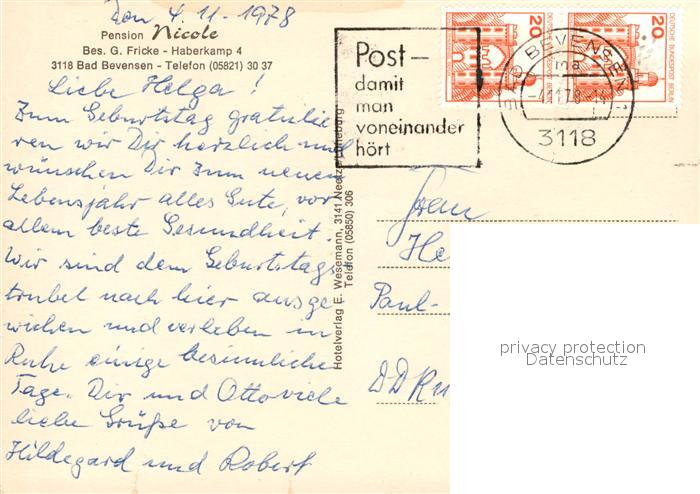 Den 4.11.1978
Pension Nicole
Bes. G. Fricke - Haberkamp 4
3118 Bad Bevensen - Telefon (05821) 30 37
Liebe Helga!
Zum Geburtstag gratulie
ren wir Dir herzlich und
wünschen Dir zum neuen
Lebensjahr alles Gute, vor
allem beste Gesundheit.
Wir sind dem Geburtstags
trubel nach hier ausge
wichen und verleben in
Ruhe einige besinnliche
Tage. Dir und Otto viele
liebe Grüße von
Hildegard und Robert
Hotelverlag E. Wesemann, 3141 Neetze/Lüneburg
Telefon (05850) 306
Post-
damit
man
voneinander
hört
20
20
DEUTSCHE BUNDESPOST BERLIN
BAD BEVENSEN
3118
Frau
He
Paul-
DDR
privacy protection
Datenschutz